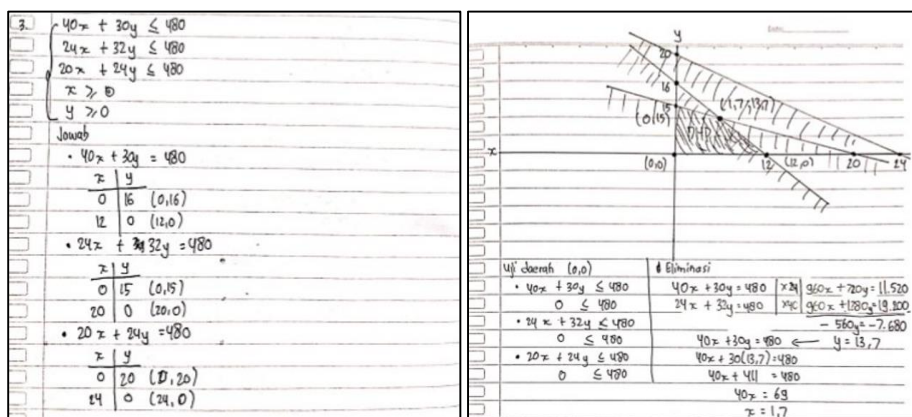 3. 40x + 30y ≤ 480
24x + 32y ≤ 480
20x + 24y ≤ 480
x ≥ 0
y ≥ 0
Jawab
• 40x + 30y = 480
x | y
0 | 16 (0,16)
12 | 0 (12,0)
• 24x + 32y = 480
x | y
0 | 15 (0,15)
20 | 0 (20,0)
• 20x + 24y = 480
x | y
0 | 20 (0,20)
24 | 0 (24,0)
y
20
16
15
(0,15)
(1,7,13,7)
DHP
x
(0,0)
12
(12,0)
20
24
Uji daerah (0,0)
• 40x + 30y ≤ 480
0 ≤ 480
• 24x + 32y ≤ 480
0 ≤ 480
• 20x + 24y ≤ 480
0 ≤ 480
Eliminasi
40x + 30y = 480 | x24 | 960x + 720y = 11.520
24x + 32y = 480 | x40 | 960x + 1280y = 19.200
- 560y = -7.680
40x + 30y = 480 ← y = 13,7
40x + 30(13,7) = 480
40x + 411 = 480
40x = 69
x = 1,7